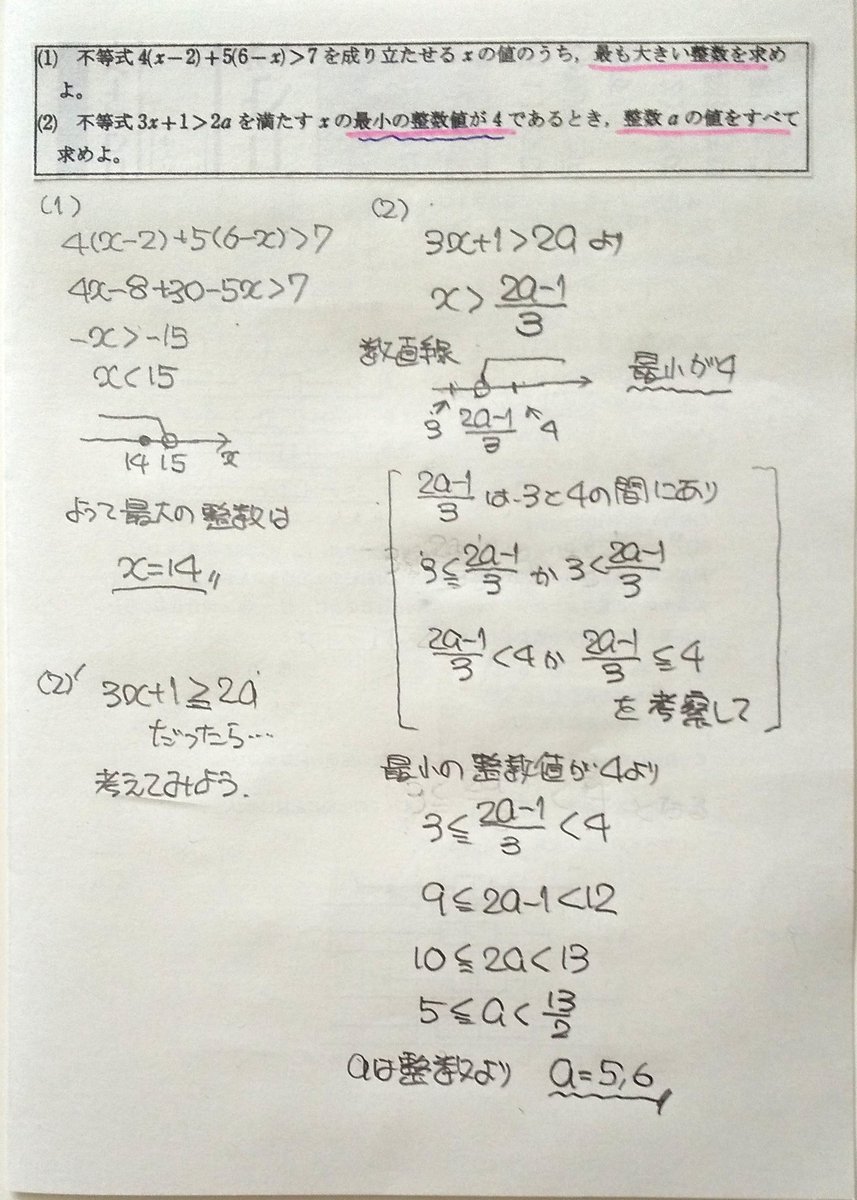 (1) 不等式 4(x−2)+5(6−x)>7 を成り立たせる x の値のうち，最も大きい整数を求め
よ。
(2) 不等式 3x+1>2a を満たす x の最小の整数値が 4 であるとき，整数 a の値をすべて
求めよ。
(1)
4(x-2)+5(6-x)>7
4x-8+30-5x>7
-x>-15
x<15
14 15 x
よって最大の整数は
x=14〃
(2)′ 3x+1≧2a
だったら…
考えてみよう.
(2)
3x+1>2a より
x> (2a-1)/3
数直線
最小が4
3 (2a-1)/3 4
(2a-1)/3 は 3と4の間にあり
3≦(2a-1)/3 か 3<(2a-1)/3
(2a-1)/3 <4か (2a-1)/3 ≦4
を考察して
最小の整数値が4より
3≦(2a-1)/3 <4
9≦2a-1<12
10≦2a<13
5≦a<13/2
aは整数より a=5,6